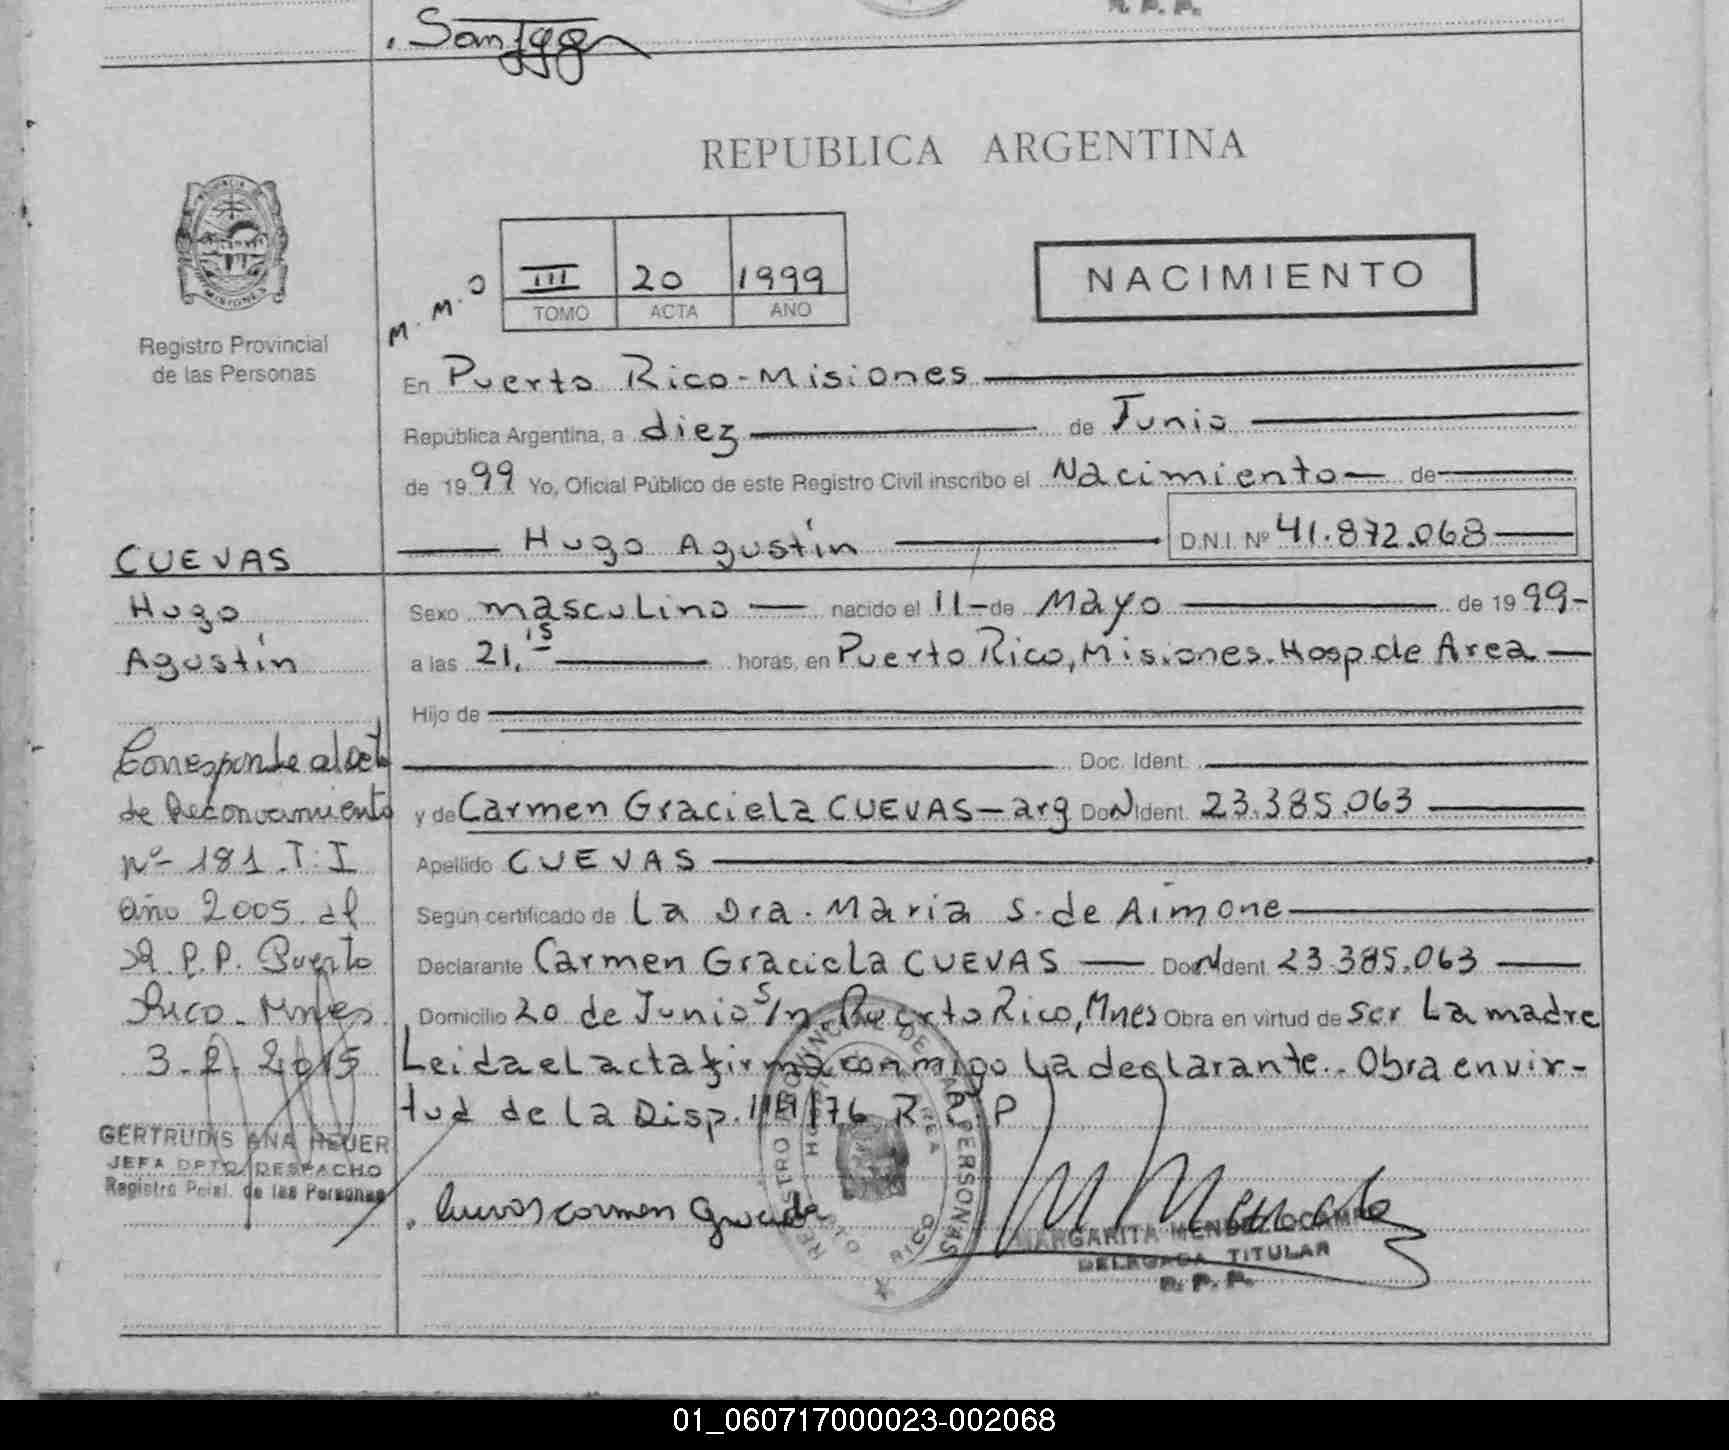 R. P. P.
REPUBLICA ARGENTINA
PROVINCIA DE
MISIONES
Registro Provincial
de las Personas
M. M. O
III 20 1999
TOMO ACTA AÑO
NACIMIENTO
En Puerto Rico - Misiones
República Argentina, a diez de Junio
de 1999 Yo, Oficial Público de este Registro Civil inscribo el Nacimiento de
Hugo Agustín D.N.I. Nº 41.872.068
CUEVAS
Hugo
Agustín
Sexo masculino nacido el 11 de Mayo de 1999-
a las 21,15 horas, en Puerto Rico, Misiones. Hosp. de Area
Hijo de
Doc. Ident.
y de Carmen Graciela CUEVAS - arg DoNIdent. 23.385.063
Apellido CUEVAS
Según certificado de La Dra. Maria S. de Aimone
Declarante Carmen Graciela CUEVAS DoNIdent 23.385.063
Domicilio 20 de Junio S/n Puerto Rico, Mnes Obra en virtud de ser La madre
Leida el acta firma conmigo La declarante.. Obra en vir-
tud de la Disp. /76 R. P. P
Corresponde al Acta
de Reconocimiento
nº- 181. T: I
año 2005. del
R. P. P. Puerto
Rico - Mnes
3.2.2015
GERTRUDIS ANA HEUER
JEFA DPTO. DESPACHO
Registro Pcial. de las Personas
Cuevas Carmen Graciela
REGISTRO PROVINCIAL DE LAS PERSONAS
PUERTO RICO
MARGARITA MENDEZ OCAMPO
DELEGADA TITULAR
R. P. P.
01_060717000023-002068